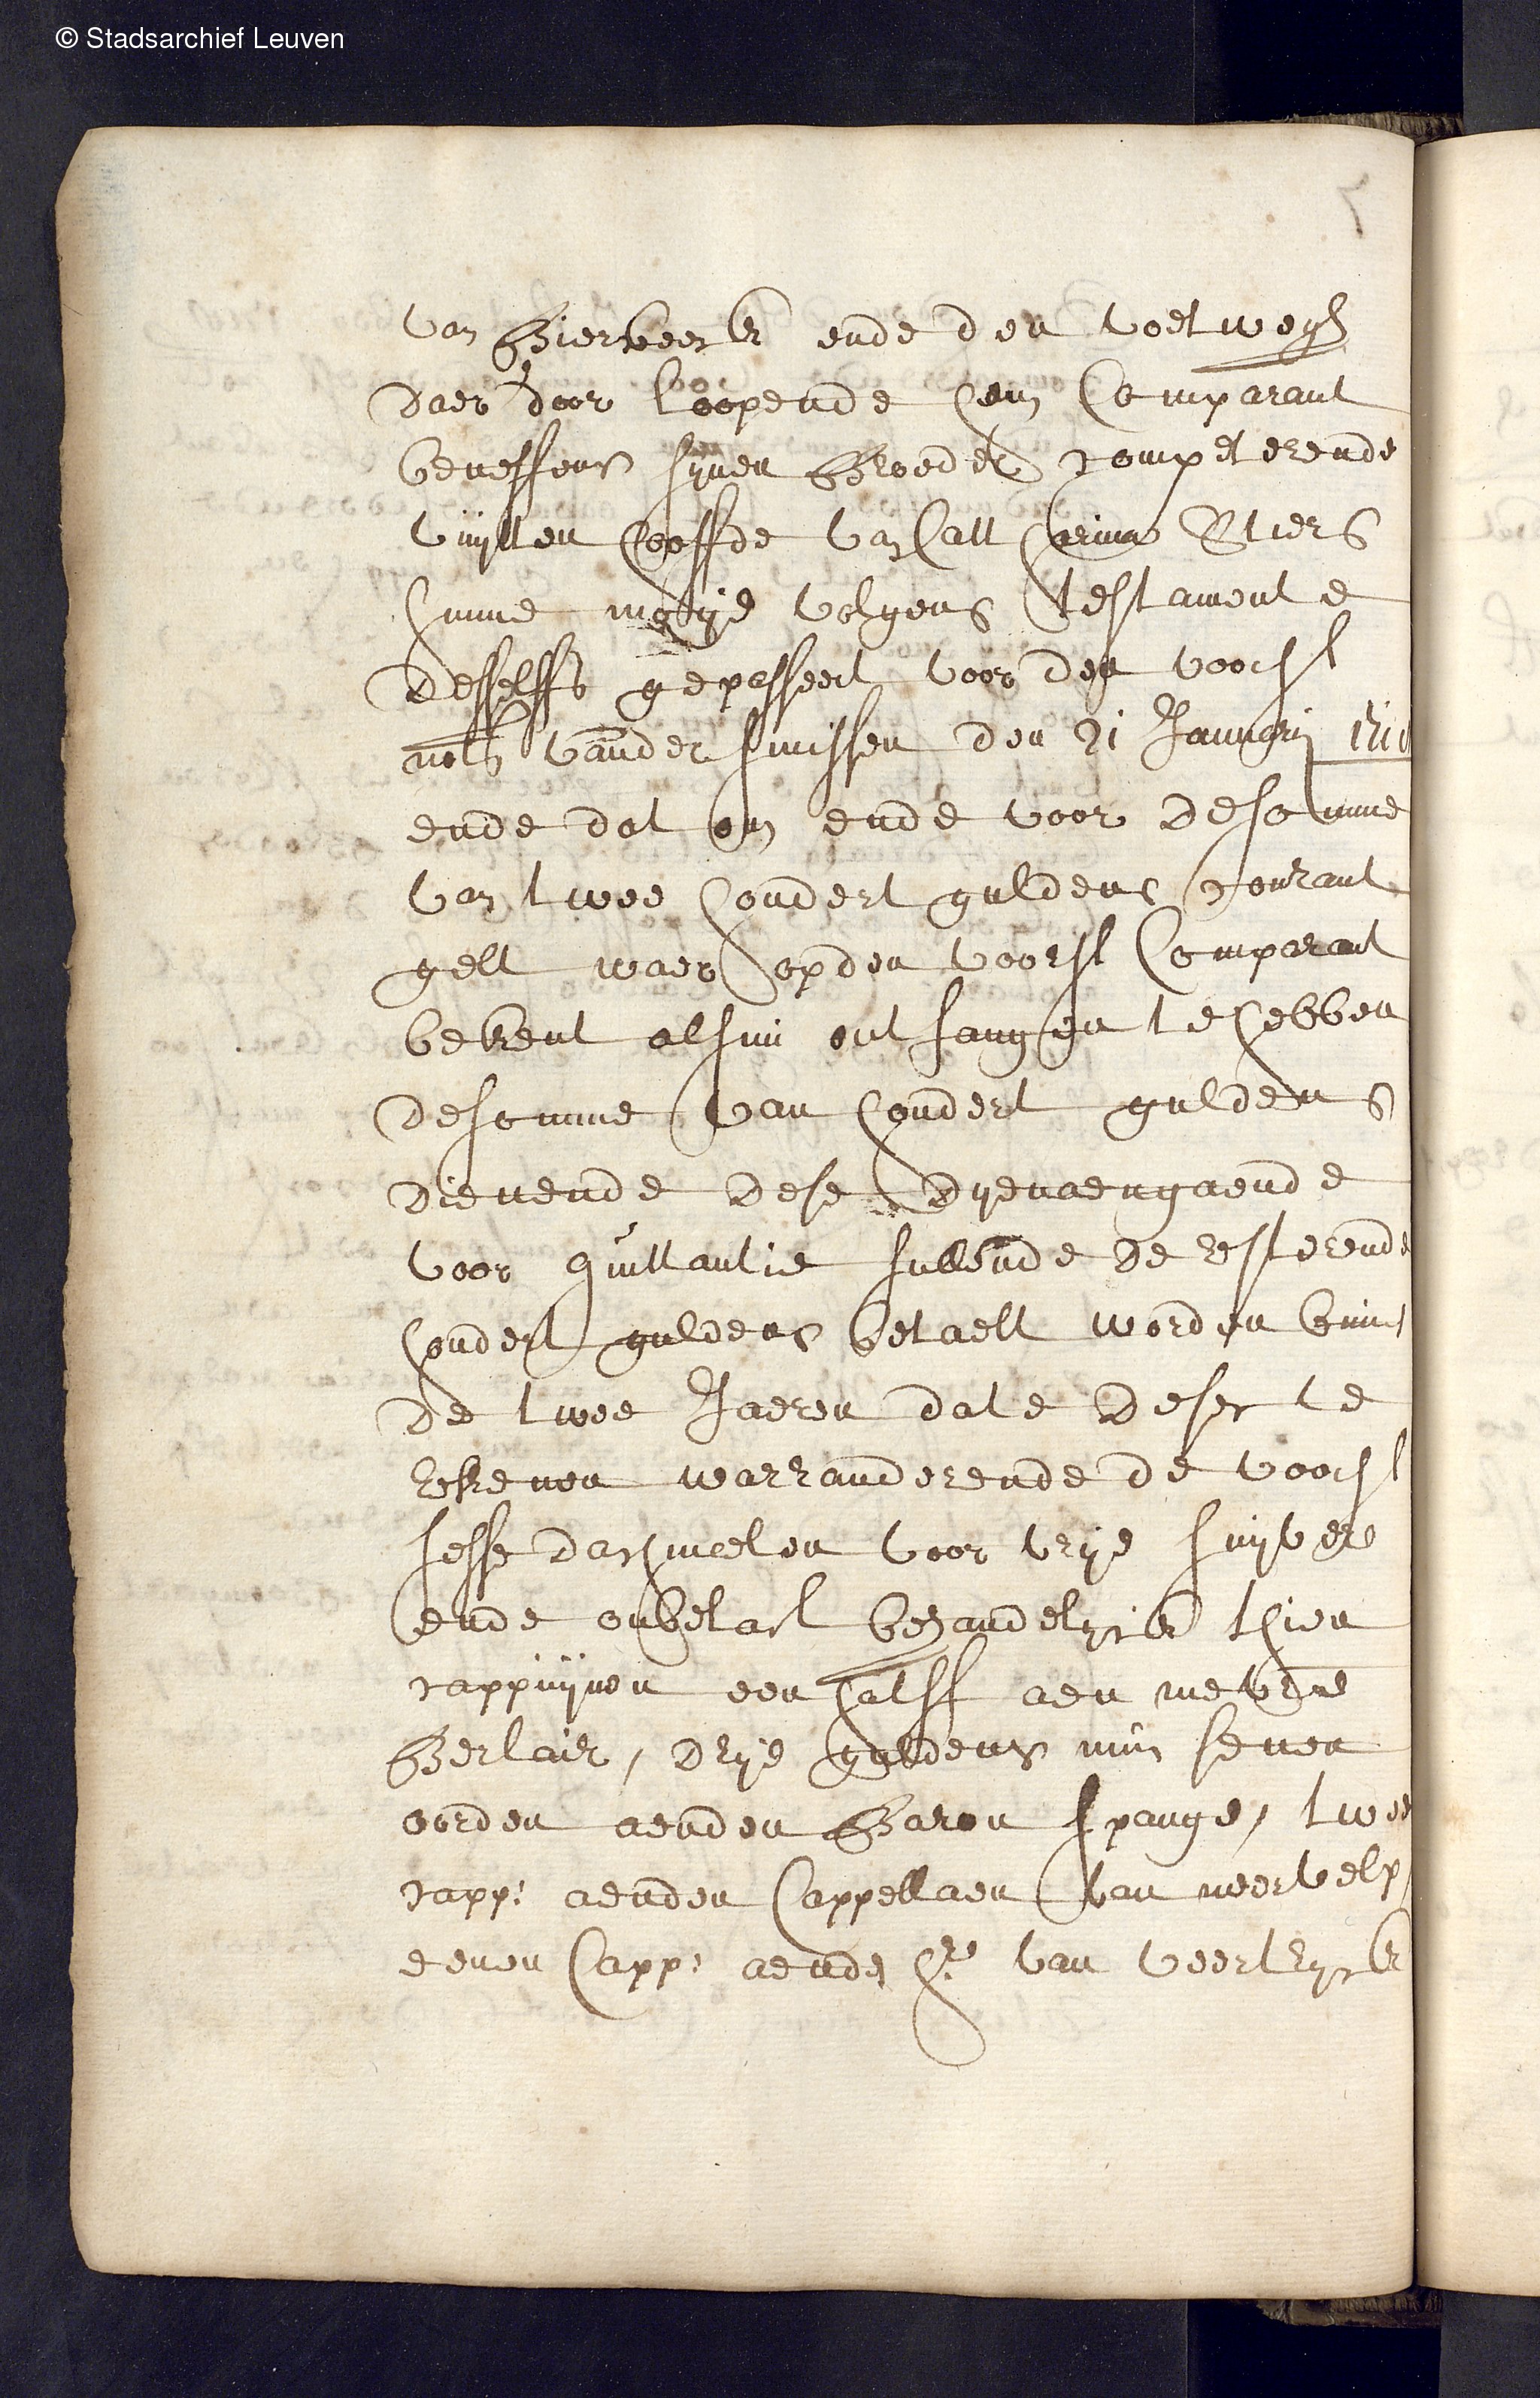 © Stadsarchief Leuven
van Bierbeeck ende den voetwegh
daer door loopende hem Comparant
beneffens synen Broeder competerende
vuytten hooffde van Catharina Stiers
hunne moye volgens testamente
desselffs gepasseert voor den voorst
nots vander huijssen den 21 Januarij
ende dat om ende voor de somme
van twee hondert guldens courant
gelt waer op den voorst Comparant
bekent alsnu ontfangen te hebben
de somme van hondert guldens
dienende dese dyenaengaende
voor quittantie sullende de resterende
hondert guldens betaelt worden binnen
de twee Jaeren date deser te
rekenen warranderende de voorst
sesse dachmaelen voor vrye suyver
ende onbelast behandelyck thien
cappuijnen een halff aen mevre
Berlair, drye guldens min seven
oorden aenden Baron Spange, twee
capp: aenden Cappellaen van neervelp,
eenen Capp: aende hre van veertryck